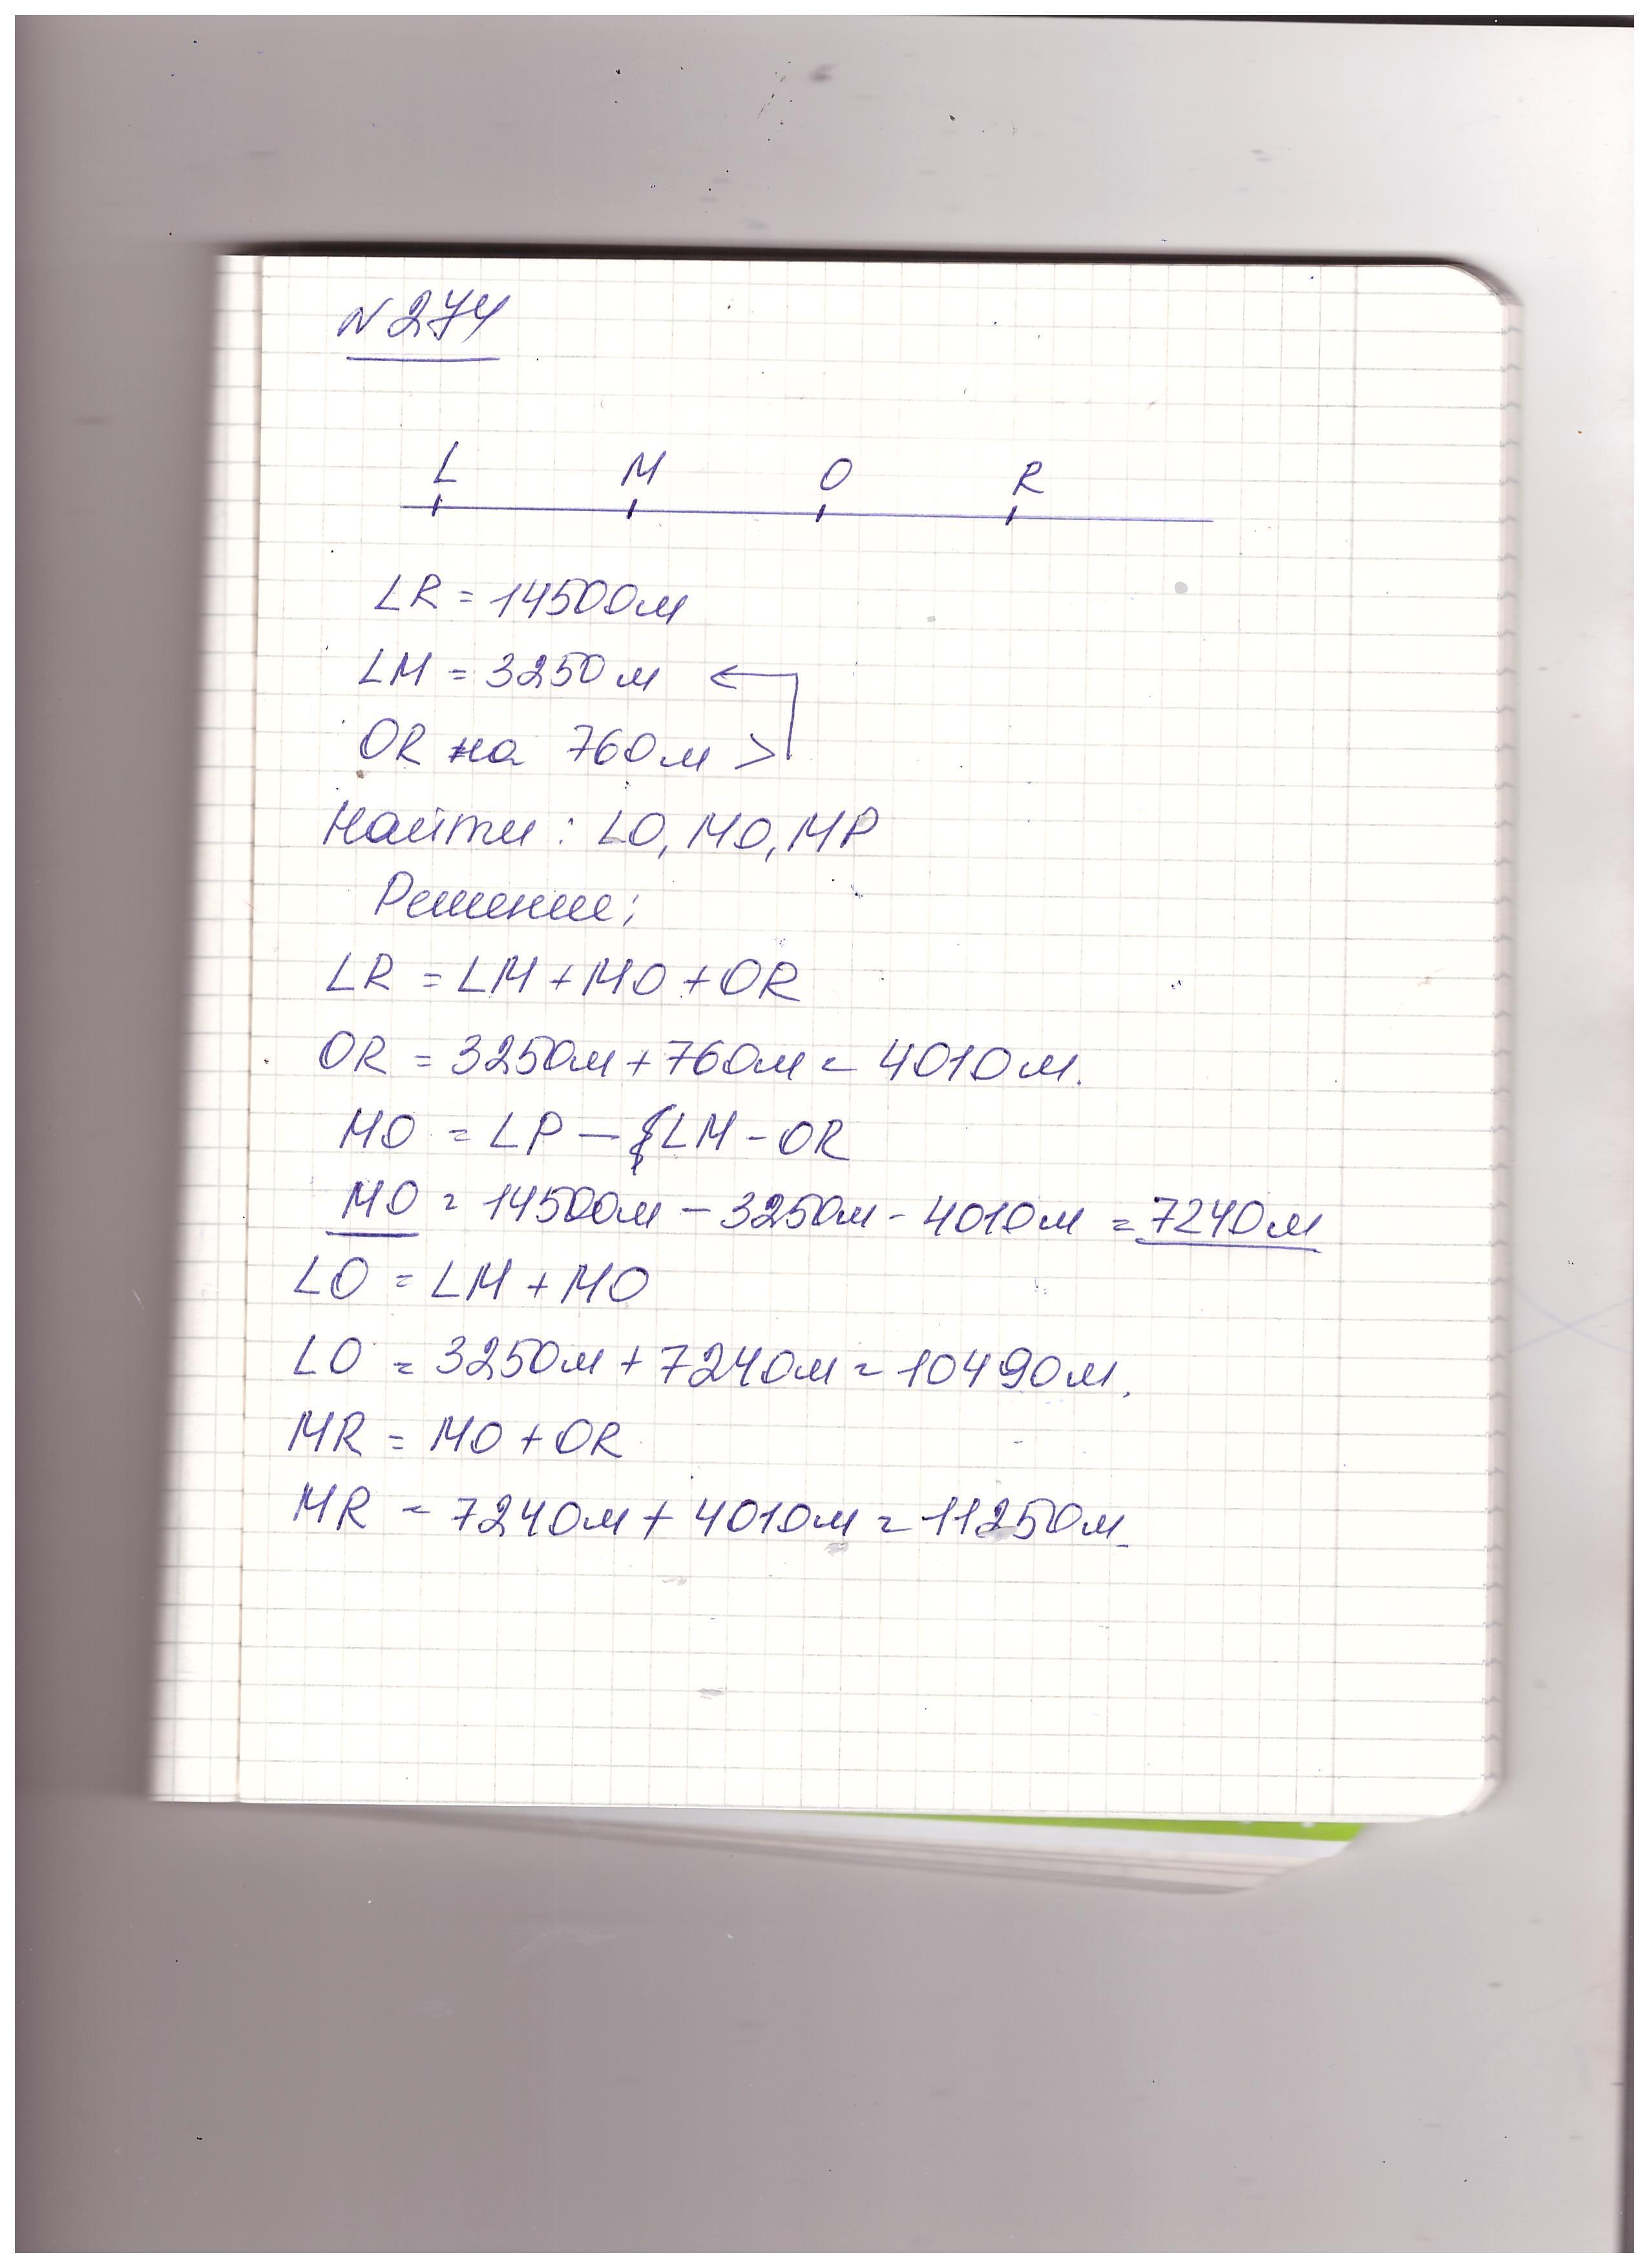 N 274
L M O R
LR = 14500м
LM = 3250м
OR на 760м >
Найти: LO, MO, MP
Решение;
LR = LM + MO + OR
OR = 3250м + 760м = 4010м.
MO = LP - LM - OR
MO = 14500м - 3250м - 4010м = 7240м
LO = LM + MO
LO = 3250м + 7240м = 10490м.
MR = MO + OR
MR = 7240м + 4010м = 11250м.